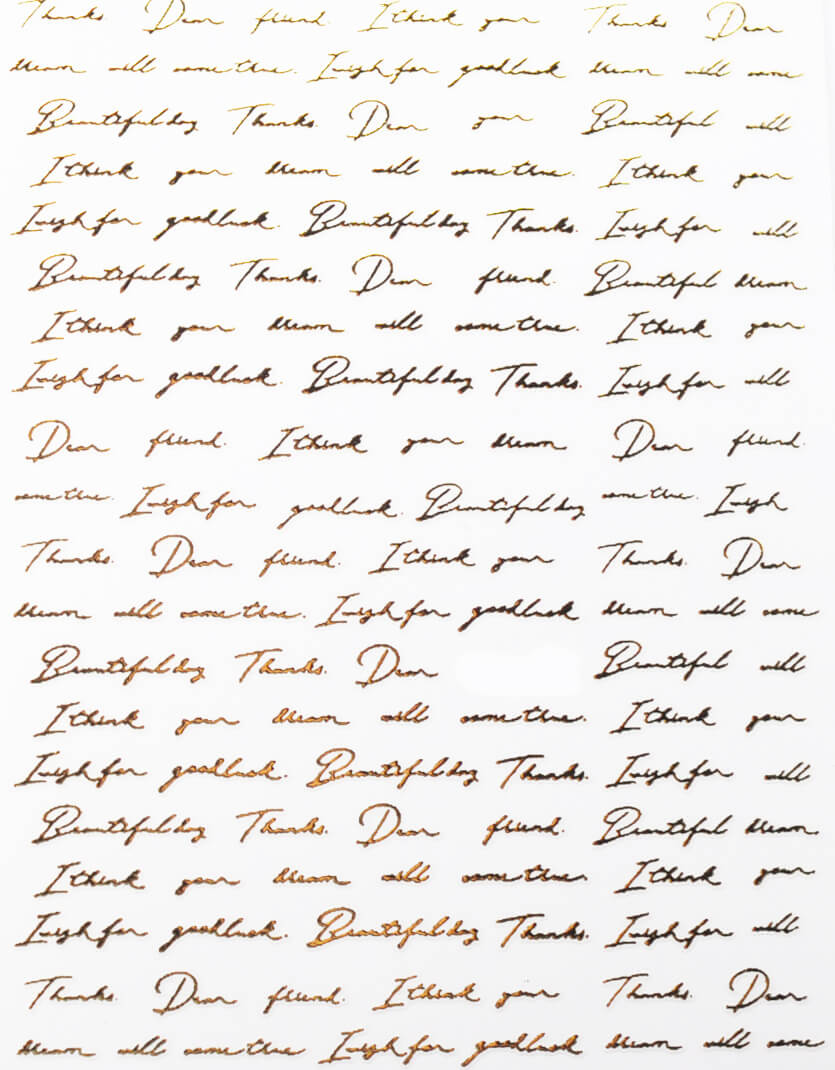 Thanks Dear friend. I think your Thanks Dear
dream will come true. I wigh for goodluck dream will come
Beautiful day Thanks. Dear your Beautiful will
I think your dream will come true. I think your
I wigh for goodluck. Beautiful day Thanks. I wigh for will
Beautiful day Thanks. Dear friend. Beautiful dream
I think your dream will come true. I think your
I wigh for goodluck. Beautiful day Thanks. I wigh for will
Dear friend. I think your dream Dear friend.
come true. I wigh for goodluck. Beautiful day come true. I wigh
Thanks. Dear friend. I think your Thanks. Dear
dream will come true. I wigh for goodluck dream will come
Beautiful day Thanks. Dear Beautiful will
I think your dream will come true. I think your
I wigh for goodluck. Beautiful day Thanks. I wigh for will
Beautiful day Thanks. Dear friend. Beautiful dream
I think your dream will come true. I think your
I wigh for goodluck. Beautiful day Thanks. I wigh for will
Thanks. Dear friend. I think your Thanks. Dear
dream will come true I wigh for goodluck dream will come